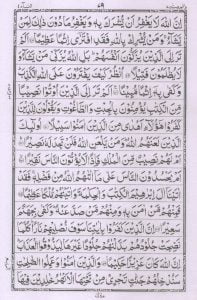 اِنَّ اللّٰهَ لَا يَغْفِرُ اَنْ يُّشْرَكَ بِهٖ وَيَغْفِرُ مَا دُوْنَ ذٰلِكَ لِمَنْ
يَّشَآءُ ۚ وَمَنْ يُّشْرِكْ بِاللّٰهِ فَقَدِ افْتَرٰٓى اِثْمًا عَظِيْمًا ۝ اَلَمْ
تَرَ اِلَى الَّذِيْنَ يُزَكُّوْنَ اَنْفُسَهُمْ ؕ بَلِ اللّٰهُ يُزَكِّيْ مَنْ يَّشَآءُ
وَلَا يُظْلَمُوْنَ فَتِيْلًا ۝ اُنْظُرْ كَيْفَ يَفْتَرُوْنَ عَلَى اللّٰهِ الْكَذِبَ ؕ
وَكَفٰى بِهٖٓ اِثْمًا مُّبِيْنًا ۝ اَلَمْ تَرَ اِلَى الَّذِيْنَ اُوْتُوْا نَصِيْبًا
مِّنَ الْكِتٰبِ يُؤْمِنُوْنَ بِالْجِبْتِ وَالطَّاغُوْتِ وَيَقُوْلُوْنَ لِلَّذِيْنَ
كَفَرُوْا هٰٓؤُلَآءِ اَهْدٰى مِنَ الَّذِيْنَ اٰمَنُوْا سَبِيْلًا ۝ اُولٰٓئِكَ
الَّذِيْنَ لَعَنَهُمُ اللّٰهُ ؕ وَمَنْ يَّلْعَنِ اللّٰهُ فَلَنْ تَجِدَ لَهٗ نَصِيْرًا ۝
اَمْ لَهُمْ نَصِيْبٌ مِّنَ الْمُلْكِ فَاِذًا لَّا يُؤْتُوْنَ النَّاسَ نَقِيْرًا ۝
اَمْ يَحْسُدُوْنَ النَّاسَ عَلٰى مَآ اٰتٰىهُمُ اللّٰهُ مِنْ فَضْلِهٖ ۚ فَقَدْ
اٰتَيْنَآ اٰلَ اِبْرٰهِيْمَ الْكِتٰبَ وَالْحِكْمَةَ وَاٰتَيْنٰهُمْ مُّلْكًا عَظِيْمًا ۝
فَمِنْهُمْ مَّنْ اٰمَنَ بِهٖ وَمِنْهُمْ مَّنْ صَدَّ عَنْهُ ؕ وَكَفٰى بِجَهَنَّمَ
سَعِيْرًا ۝ اِنَّ الَّذِيْنَ كَفَرُوْا بِاٰيٰتِنَا سَوْفَ نُصْلِيْهِمْ نَارًا ؕ كُلَّمَا
نَضِجَتْ جُلُوْدُهُمْ بَدَّلْنٰهُمْ جُلُوْدًا غَيْرَهَا لِيَذُوْقُوا الْعَذَابَ ؕ
اِنَّ اللّٰهَ كَانَ عَزِيْزًا حَكِيْمًا ۝ وَالَّذِيْنَ اٰمَنُوْا وَعَمِلُوا الصّٰلِحٰتِ
سَنُدْخِلُهُمْ جَنّٰتٍ تَجْرِيْ مِنْ تَحْتِهَا الْاَنْهٰرُ خٰلِدِيْنَ فِيْهَآ